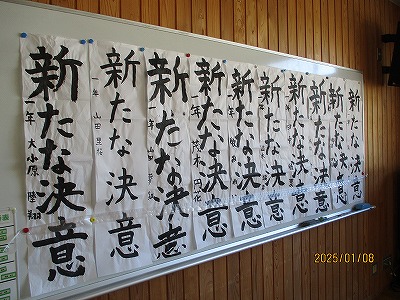 新たな決意
一年 大小原 陸翔
新たな決意
一年 山田
新たな決意
一年 山田
新たな決意
一年 茂木
新たな決意
一年
新たな決意
新たな決意
新たな決意
新たな決意
新たな決意
2025/01/08